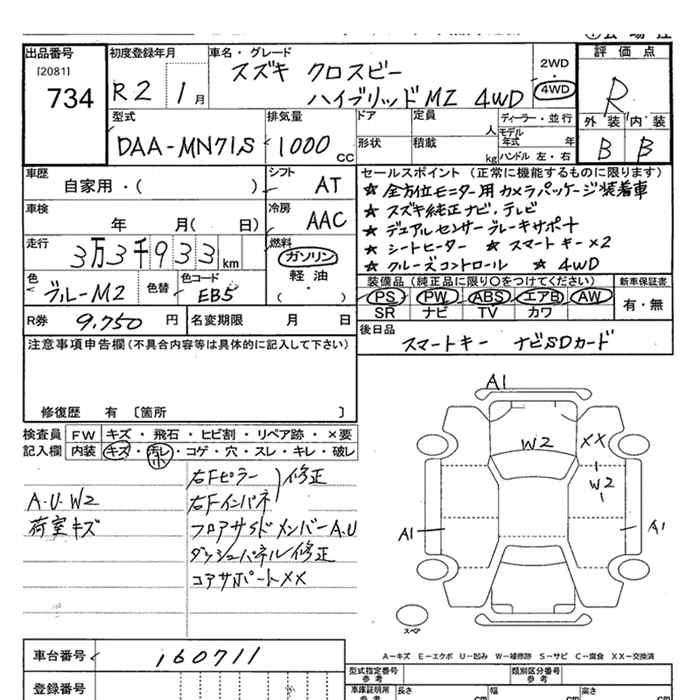 出品番号
[2081]
734
初度登録年月
R2 1月
車名・グレード
スズキ クロスビー
ハイブリッドMZ 4WD
2WD
4WD
評価点
R
外装 内装
B B
型式
DAA-MN71S
排気量
1000 cc
ドア
定員
人
ディーラー・並行
モデル年式 年
形状
積載
kg
ハンドル 左・右
車歴
自家用・( )
シフト
AT
車検
年 月( 日)
冷房
AAC
走行
3万3千933 km
燃料
ガソリン
軽油
( ・ )
色
ブルーM2
色替
色コード
EB5
R券
9,750 円
名変期限 月 日
セールスポイント(正常に機能するものに限ります)
★ 全方位モニター用カメラパッケージ装着車
★ スズキ純正ナビ、テレビ
★ デュアルセンサーブレーキサポート
★ シートヒーター ★ スマートキー×2
★ クルーズコントロール ★ 4WD
装備品(純正品に限り○をつけてください)
PS PW ABS エアB AW
SR ナビ TV カワ
新車保証書
有・無
後日品
スマートキー ナビSDカード
注意事項申告欄(不具合内容等は具体的に記入して下さい)
修復歴 有 〔箇所 〕
検査員
記入欄
FW キズ・飛石・ヒビ割・リペア跡・×要
内装 キズ・汚レ・コゲ・穴・スレ・キレ・破レ
小
A.U W2
荷室キズ
右Fピラー
右Fインパネ
修正
フロアサイドメンバーA.U
ダッシュパネル修正
コアサポートXX
A1
W2
XX
W2
A1
A1
スペア
A-キズ E-エクボ U-凹み W-補修跡 S-サビ C-腐食 XX-交換済
車台番号
160711
登録番号
型式指定番号
参考
類別区分番号
参考
車庫証明用
参考
長さ cm
幅 cm
高さ cm